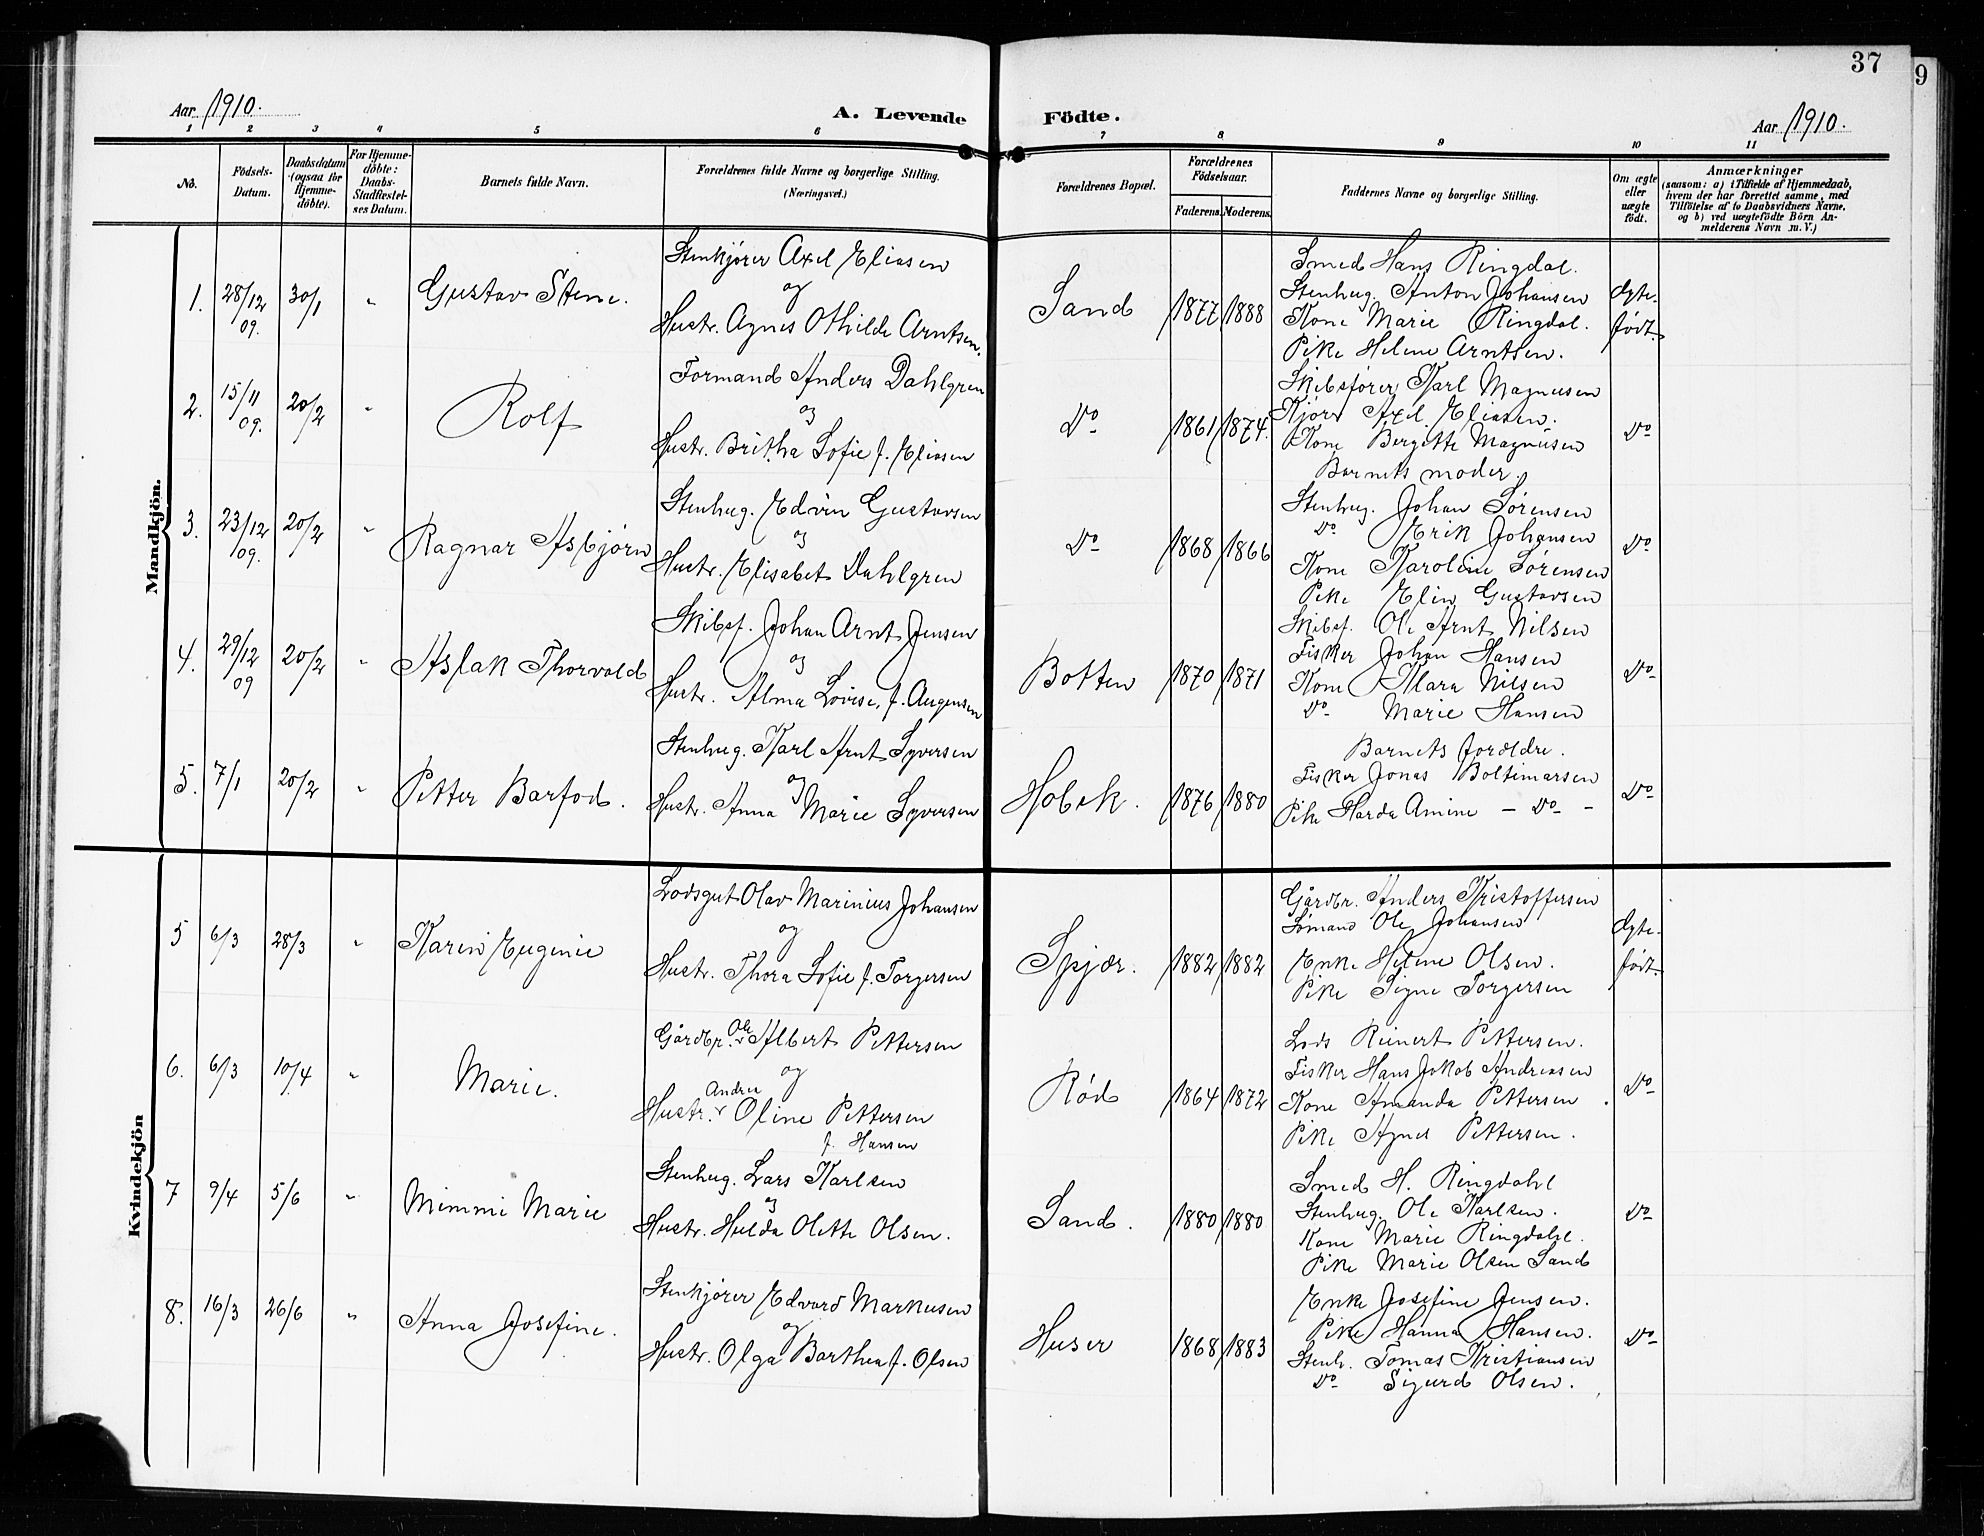 37
9
Aar 1910.
A. Levende Födte.
Aar 1910.
1 2 3 4 5 6 7 8 9 10 11
No.
Födsels-
Datum.
Daabsdatum
(ogsaa for
Hjemme-
döbte).
For Hjemme-
döbte:
Daabs-
Stadfæstel-
ses Datum.
Barnets fulde Navn.
Forældrenes fulde Navne og borgerlige Stilling.
(Næringsvei.)
Forældrenes Bopæl.
Forældrenes
Födselsaar.
Faderens. Moderens.
Faddernes Navne og borgerlige Stilling.
Om ægte
eller
uægte
födt.
Anmærkninger
(saasom: a) i Tilfælde af Hjemmedaab,
hvem der har forrettet samme, med
Tilföielse af to Daabsvidners Navne,
og b) ved uægtefödte Börn An-
melderens Navn m. V.)
Mandkjön.
1. 28/12 09. 30/1 " Gustav Stene.
Stenkjører Axel Eliasen
og
Hustr. Agnes Othilde Arntsen.
Sand 1877 1888
Smed Hans Ringdal.
Stenhug. Anton Johansen
Kone Marie Ringdal.
Pike Helene Arntsen.
Ægte-
født.
2. 15/11 09. 20/2 " Rolf
Formand Anders Dahlgren
og
Hustr. Britha Sofie f. Eliasen
Do 1861 1874.
Skibsfører Karl Magnusen
Kjører Axel Eliasen.
Kone Bergitte Magnusen
Barnets moder.
Do
3. 23/12 09. 20/2 " Ragnar Asbjørn
Stenhug. Edvin Gustavsen
og
Hustr. Elisabet Dahlgren
Do 1868 1866
Stenhug. Johan Sørensen
Do Erik Johansen
Kone Karoline Sørensen
Pike Elin Gustavsen
Do
4. 29/12 09 20/2 " Aslak Thorvald
Skibsf. Johan Arnt Jensen
og
Hustr. Alma Lovise, f. Augensen
Botten 1870 1871
Skibsf. Ole Arnt Nilsen
Fisker Johan Hansen
Kone Klara Nilsen
Do Marie Hansen
Do
5. 7/1 20/2 " Petter Barfod.
Stenhug. Karl Arnt Syversen
og
Hustr. Anna Marie Syversen
Hobek. 1876 1880
Barnets forældre.
Fisker Jonas Boltimarsen
Pike Harda Amine – Do –
Do
Kvindekjön
5 6/3 28/3 " Karin Eugenie
Lodsgut Olav Marinius Johansen
og
Hustr. Thora Sofie f. Torgersen
Spjær. 1882 1882
Gårdbr. Anders Kristoffersen
Sømand Ole Johansen
Enke Helene Olsen.
Pike Signe Torgersen
Ægte-
født.
6. 6/3 10/4 " Marie.
Gårdbr. Ole Albert Pettersen
og
Hustr. Andrea Oline Pettersen
f. Hansen
Rød 1864 1872
Lods Reinert Pettersen.
Fisker Hans Jakob Andreasen
Kone Amanda Pettersen.
Pike Agnes Pettersen.
Do
7 9/4 5/6 " Mimmi Marie
Stenhug. Lars Karlsen
og
Hustr. Hulda Olette Olsen.
Sand. 1880 1880
Smed H. Ringdahl
Stenhug. Ole Karlsen.
Kone Marie Ringdahl.
Pike Marie Olsen Sand
Do
8. 16/3 26/6 " Anna Josefine.
Stenkjører Edvard Markusen
og
Hustr. Olga Barthea f. Olsen
Huser 1868 1883
Enke Josefine Jensen.
Pike Hanna Hansen.
Stenh. Tomas Kristiansen
Do Sigurd Olsen.
Do